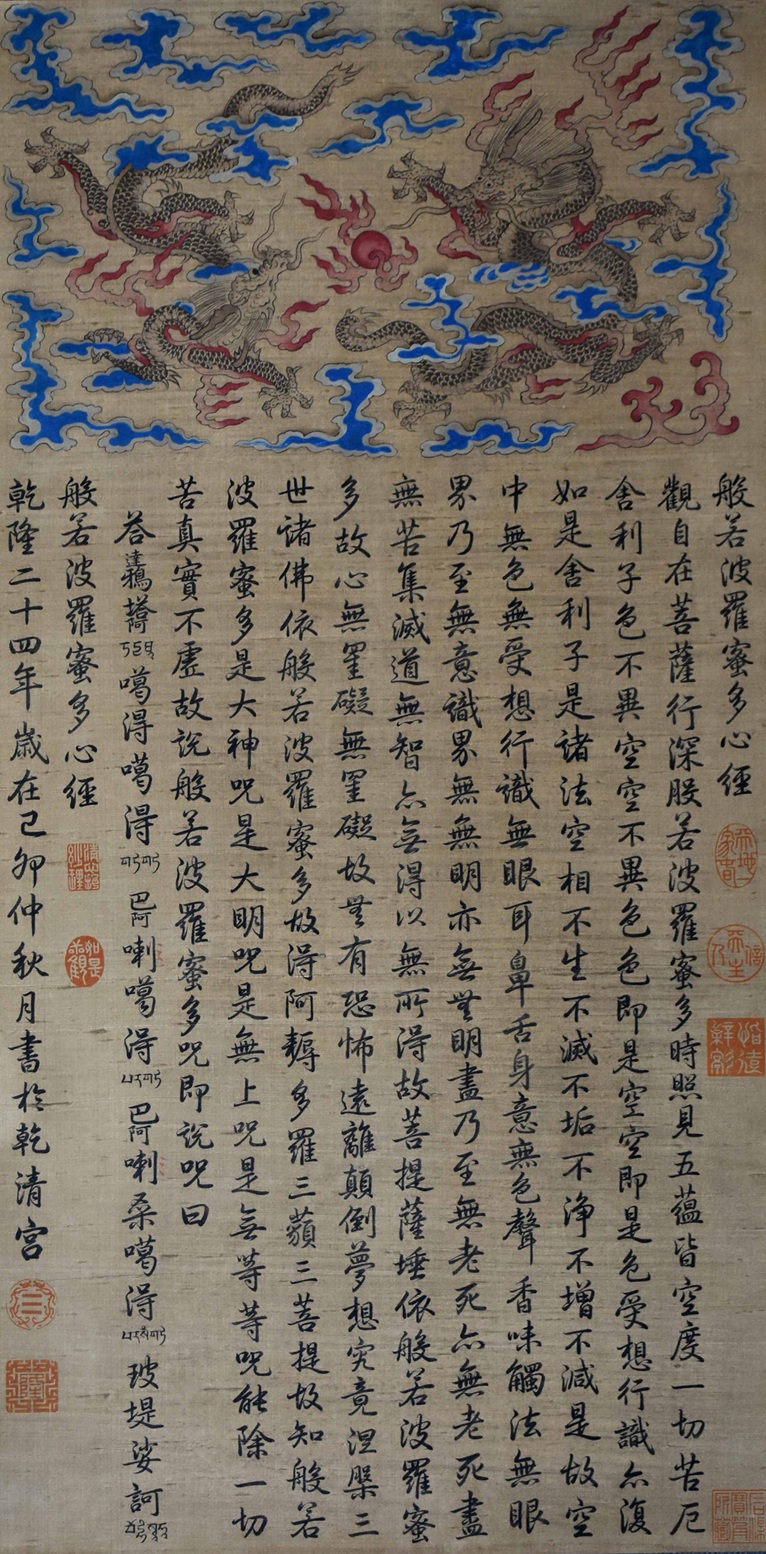 般若波羅蜜多心經
觀自在菩薩行深般若波羅蜜多時照見五蘊皆空度一切苦厄
舍利子色不異空空不異色色即是空空即是色受想行識亦復
如是舍利子是諸法空相不生不滅不垢不淨不增不減是故空
中無色無受想行識無眼耳鼻舌身意無色聲香味觸法無眼
界乃至無意識界無無明亦無無明盡乃至無老死亦無老死盡
無苦集滅道無智亦無得以無所得故菩提薩埵依般若波羅蜜
多故心無罣礙無罣礙故無有恐怖遠離顛倒夢想究竟涅槃三
世諸佛依般若波羅蜜多故得阿耨多羅三藐三菩提故知般若
波羅蜜多是大神咒是大明咒是無上咒是無等等咒能除一切
苦真實不虛故說般若波羅蜜多咒即說咒曰
噶得噶得巴阿喇噶得巴阿喇桑噶得玻堤娑訶
般若波羅蜜多心經
乾隆二十四年歲在己卯仲秋月書於乾清宮